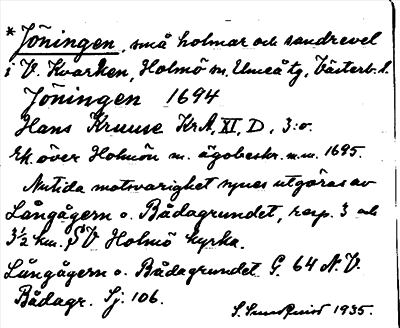 * Jöningen, små holmar och sandrevel
i V. Kvarken, Holmö sn, Umeå tg, Västerb. l.
Jöningen 1694
Hans Kruuse KrA, XI, D, 3:o.
Ek. över Holmön m. ägobeskr. m.m. 1695.
Nutida motsvarighet synes utgöras av
Långågern o. Bådagrundet, resp. 3 och
3½ km. SV Holmö kyrka.
Långågern o. Bådagrundet G. 64 N.V.
Bådagr. Sj. 106.
1935.